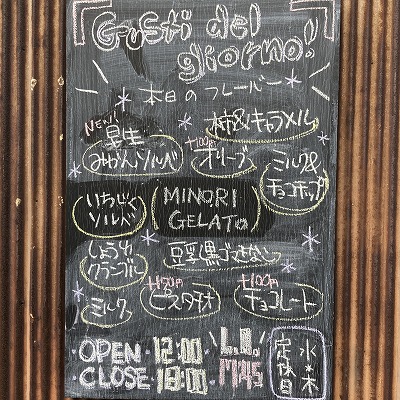 Gusti del
giorno!
本日のフレーバー
NEW!
早生
みかんソルベ
柿&キャラメル
+100円
オリーブ
ミルク&
チョコチップ
いちじく
ソルベ
MINORI
GELATO
しょうが
クランブル
豆乳黒ごまきなこ
ミルク
+170円
ピスタチオ
+100円
チョコレート
OPEN・12:00
CLOSE・18:00
L.O.
17:45
水・木
定休日